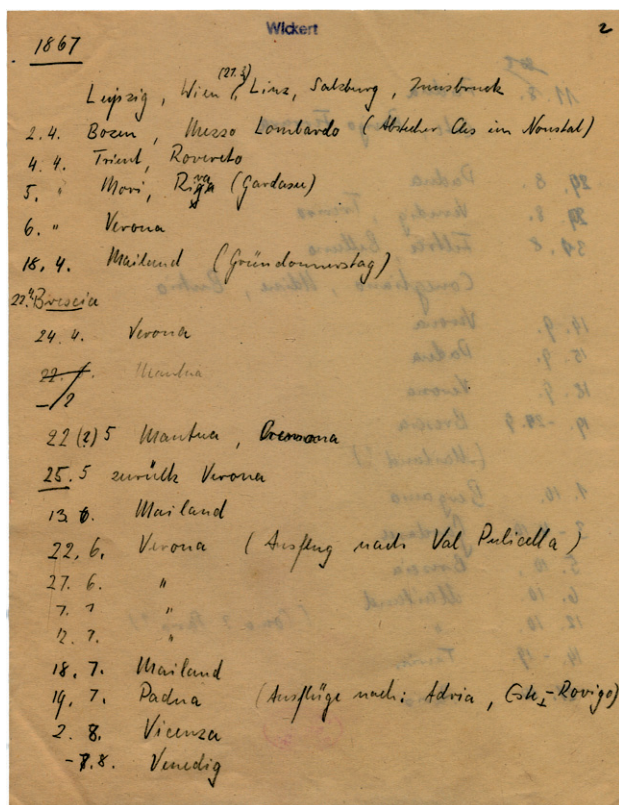 Wickert 2
1867
(27.3)
Leipzig, Wien, Linz, Salzburg, Innsbruck
2.4. Bozen, Mezzo Lombardo (Abstecher Cles im Nonstal)
4.4. Trient, Rovereto
5. " Mori, Riva (Gardasee)
6. " Verona
18.4. Mailand (Gründonnerstag)
22.4 Brescia
24.4. Verona
22. Mantua
22(?)5 Mantua, Cremona
25.5 zurück Verona
13.6. Mailand
22.6. Verona (Ausflug nach Val Pulicella)
27.6. "
7.7 "
12.7. "
18.7. Mailand
19.7. Padua (Ausflüge nach: Adria, Este-Rovigo)
2.8. Vicenza
-7.8. Venedig